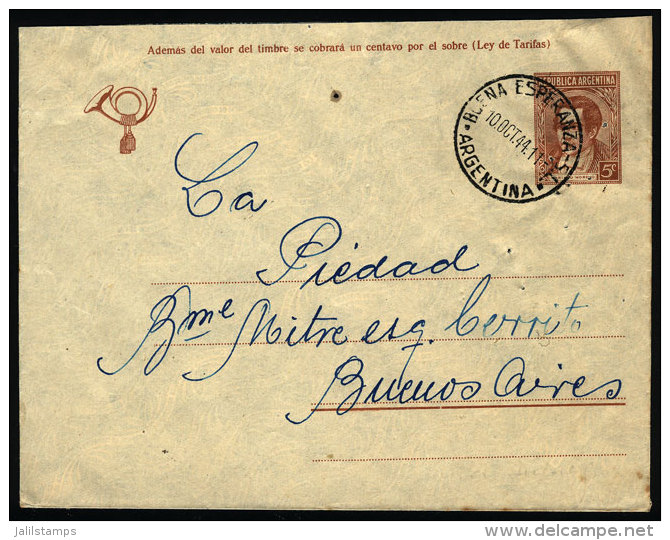 Además del valor del timbre se cobrará un centavo por el sobre (Ley de Tarifas)
REPUBLICA ARGENTINA
5c
BUENA ESPERANZA-S.L.
10.OCT.44.11
ARGENTINA
La
Piedad
Bme Mitre esq. Cerrito
Buenos Aires
jalilstamps
www.delcampe.net